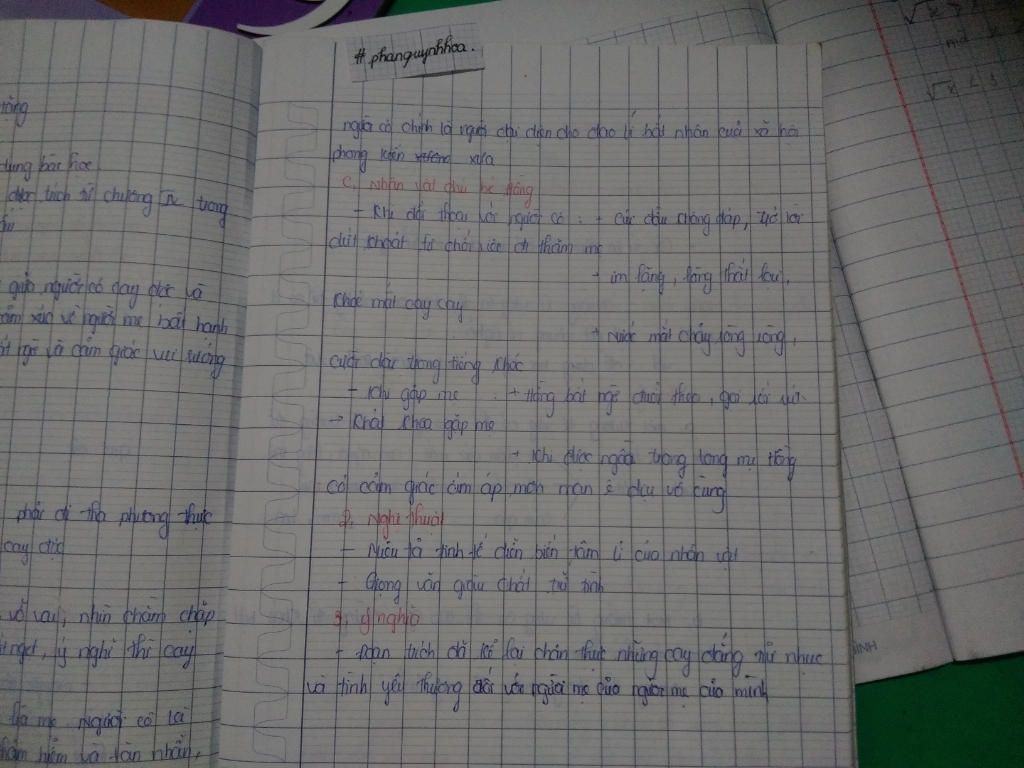 #phanquynhhoa.
tăng
dung bài học
được trích từ chương IV trong
giữa người cô cay độc và
cảm xúc về người mẹ bất hạnh
ngờ và cảm giác vui sướng
phải đi tha phương thực
cay độc
vỗ vai, nhìn chằm chặp
ngọt, ý nghĩ thì cay
mẹ. Người cô là
hiểm và tàn nhẫn.
người cô chính là người đại diện cho đạo lí bất nhân của xã hội
phong kiến xưa
c, Nhân vật chú bé Hồng
- Khi đối thoại với người cô : + cúi đầu không đáp, trả lời
dứt khoát từ chối việc đi thăm mẹ
+ im lặng, lòng thắt lại,
khóe mắt cay cay
+ Nước mắt chảy ròng ròng,
cười dài trong tiếng khóc
- Khi gặp mẹ : + Hồng bất ngờ đuổi theo, gọi
→ Khát khao gặp mẹ
+ Khi được ngồi trong lòng mẹ Hồng
có cảm giác ấm áp mơn man ê dịu vô cùng
2, Nghệ thuật
- Miêu tả tinh tế diễn biến tâm lí của nhân vật
- Giọng văn giàu chất trữ tình
3, Ý nghĩa
- Đoạn trích đã kể lại chân thực những cay đắng tủi nhục
và tình yêu thương đối với người mẹ của người mẹ của mình
INH